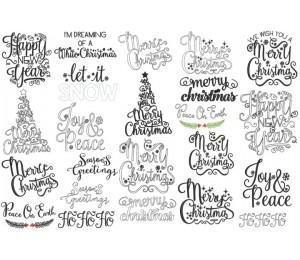 Happy
NEW
Year
I'M DREAMING
OF A
White Christmas
let it
SNOW
Merry
Christmas
Merry
Christmas
WE WISH YOU A
Merry
Christmas
merry
christmas
Peace On Earth
Happy
NEW
Year
Joy &
Peace
Merry
Christmas
Merry
Christmas
Season's
Greetings
Season's
Greetings
Merry
Christmas
Merry
Christmas
Joy &
Peace
Peace On Earth
HO HO HO
HO HO HO
Merry
Christmas
Merry
Christmas
HO HO HO